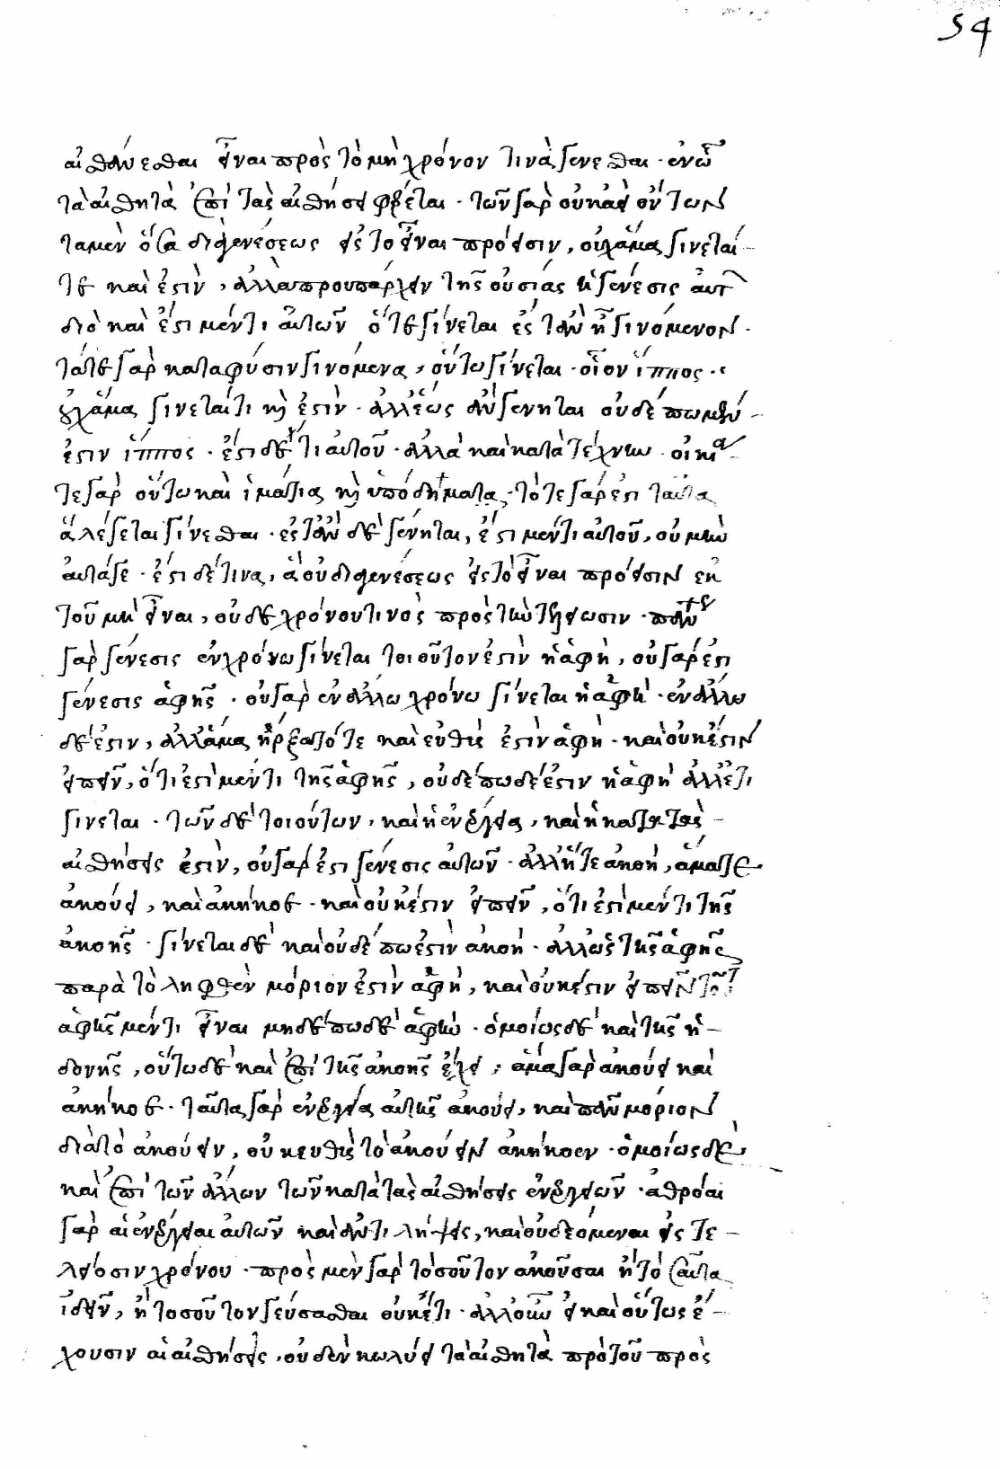 54
αἰσθάνεσθαι εἶναι πρὸς τὸ μὴ χρόνον τινὰ γενέσθαι · ἐν ᾧ
τὰ αἰσθητὰ ἐπὶ τὰς αἰσθήσεις φέρεται · τῶν γὰρ οὐκ ἀεὶ ὄντων
τὰ μὲν ὅσα διὰ γενέσεως εἰς τὸ εἶναι πρόεισιν, οὐχ ἅμα γίνεταί
τε καὶ ἔστιν, ἀλλὰ προυπάρχει τῆς οὐσίας ἡ γένεσις αὐτῶν
διὸ καὶ ἔστι μέν τι αὐτῶν ὅτε γίνεται ἔστ' ἂν ᾖ γινόμενον ·
τά τε γὰρ κατὰ φύσιν γινόμενα, οὕτω γίνεται · οἷον ἵππος ·
οὐχ ἅμα γίνεταί τι καὶ ἔστιν · ἀλλ' ἕως ἂν γένηται οὐδέπω μὲν
ἔστιν ἵππος · ἔστι δέ τι αὐτοῦ · ἀλλὰ καὶ κατὰ τέχνην · οἰκία
τε γὰρ οὕτω καὶ ἱμάτια καὶ ὑποδήματα · τότε γὰρ ἔτι ταῦτα
λέγεται γίνεσθαι · ἔστ' ἂν δὲ γένηται, ἔστι μέν τι αὐτοῦ, οὐ μὴν
αὐτά γε · ἔστι δέ τινα, ἃ οὐ διὰ γενέσεως εἰς τὸ εἶναι πρόεισιν ἐκ
τοῦ μὴ εἶναι, οὐδὲ χρόνου τινὸς πρὸς τὴν τελείωσιν · πᾶσα
γὰρ γένεσις ἐν χρόνῳ γίνεται τοιοῦτον ἐστὶν ἡ ἁφή, οὐ γάρ ἐστι
γένεσις ἁφῆς · οὐ γὰρ ἐν ἄλλῳ χρόνῳ γίνεται ἡ ἁφὴ · ἐν ἄλλῳ
δὲ ἔστιν, ἀλλ' ἅμα ἤρξατό τε καὶ εὐθὺς ἐστὶν ἁφή · καὶ οὐκ ἔστιν
εἰπεῖν, ὅτι ἔστι μέν τι τῆς ἁφῆς, οὐδέπω δέ ἐστιν ἡ ἁφὴ ἀλλ' ἔτι
γίνεται · τῶν δὲ τοιούτων, καὶ ἡ ἐνέργεια, καὶ ἡ κατὰ τὰς
αἰσθήσεις ἐστὶν, οὐ γάρ ἐστι γένεσις αὐτῶν · ἀλλ' ἥ τε ἀκοὴ, ἅμα τε
ἀκούει, καὶ ἀκήκοε · καὶ οὐκ ἔστιν εἰπεῖν, ὅτι ἔστι μέν τι τῆς
ἀκοῆς · γίνεται δὲ καὶ οὐδέπω ἐστὶν ἀκοή · ἀλλ' ὡς τῆς ἁφῆς
παρὰ τὸ ληφθὲν μόριον ἐστὶν ἁφὴ, καὶ οὐκ ἔστιν εἰπεῖν τῆς
ἁφῆς μέν τι εἶναι μηδέπω δὲ ἁφὴν · ὁμοίως δὲ καὶ τῆς ἡ-
δονῆς, οὕτω δὲ καὶ ἐπὶ τῆς ἀκοῆς ἔχει, ἅμα γὰρ ἀκούει καὶ
ἀκήκοε · ταῦτα γὰρ ἐνέργεια αὐτῆς ἀκούει, καὶ πᾶν μόριον
διὰ τὸ ἀκούειν, οὐκ εὐθὺς τὸ ἀκούειν ἀκήκοεν · ὁμοίως δὲ
καὶ ἐπὶ τῶν ἄλλων τῶν κατὰ τὰς αἰσθήσεις ἐνεργειῶν · ἀθρόαι
γὰρ αἱ ἐνέργειαι αὐτῶν καὶ ἀντιλήψεις, καὶ οὐ δεόμεναι εἰς τε-
λείοσιν χρόνου · πρὸς μὲν γὰρ τὸ σοῦτον ἀκοῦσαι ἢ τὸ ταῦτα
ἰδεῖν, ἢ τοσοῦτον γεύσασθαι οὐκέτι · ἀλλ' ὅμως εἰ καὶ οὕτως ἔ-
χουσιν αἱ αἰσθήσεις, οὐδὲν κωλύει τὰ αἰσθητὰ πρὸ τοῦ πρὸς